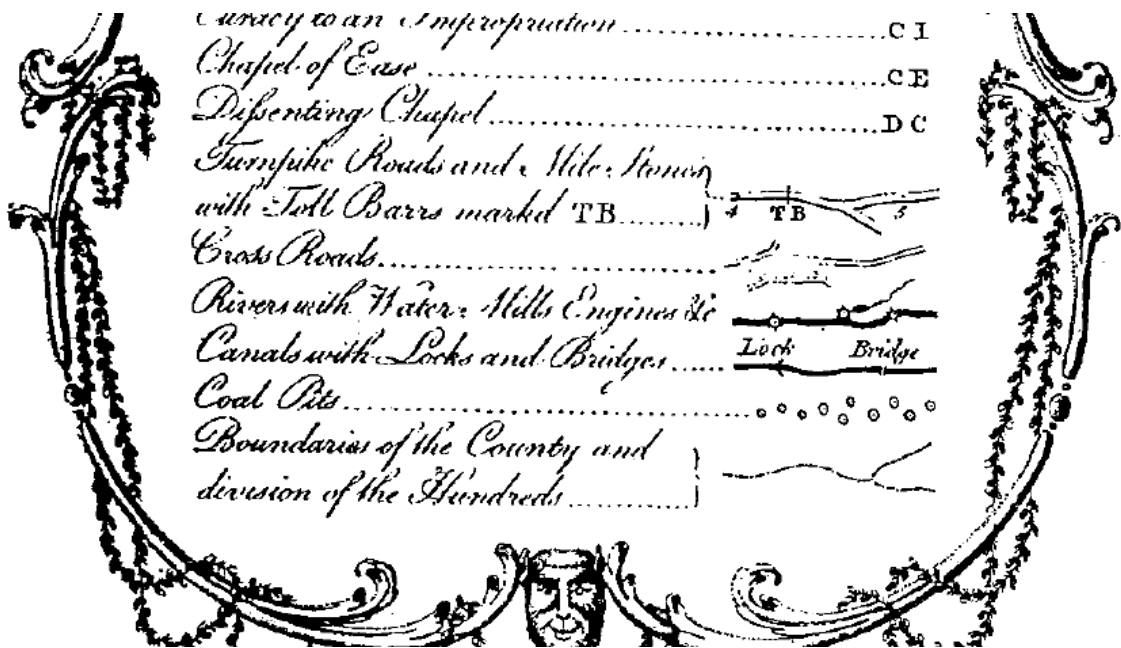 Curacy to an Impropriation ........ C I
Chapel of Ease ........ C E
Diſsenting Chapel ........ D C
Turnpike Roads and Mile Stones
with Toll Barrs markd TB ........
4 TB 5
Cross Roads ........
Rivers with Water Mills Engines &c
Canals with Locks and Bridges ......
Lock Bridge
Coal Pits ........
Boundaries of the County and
division of the Hundreds ........